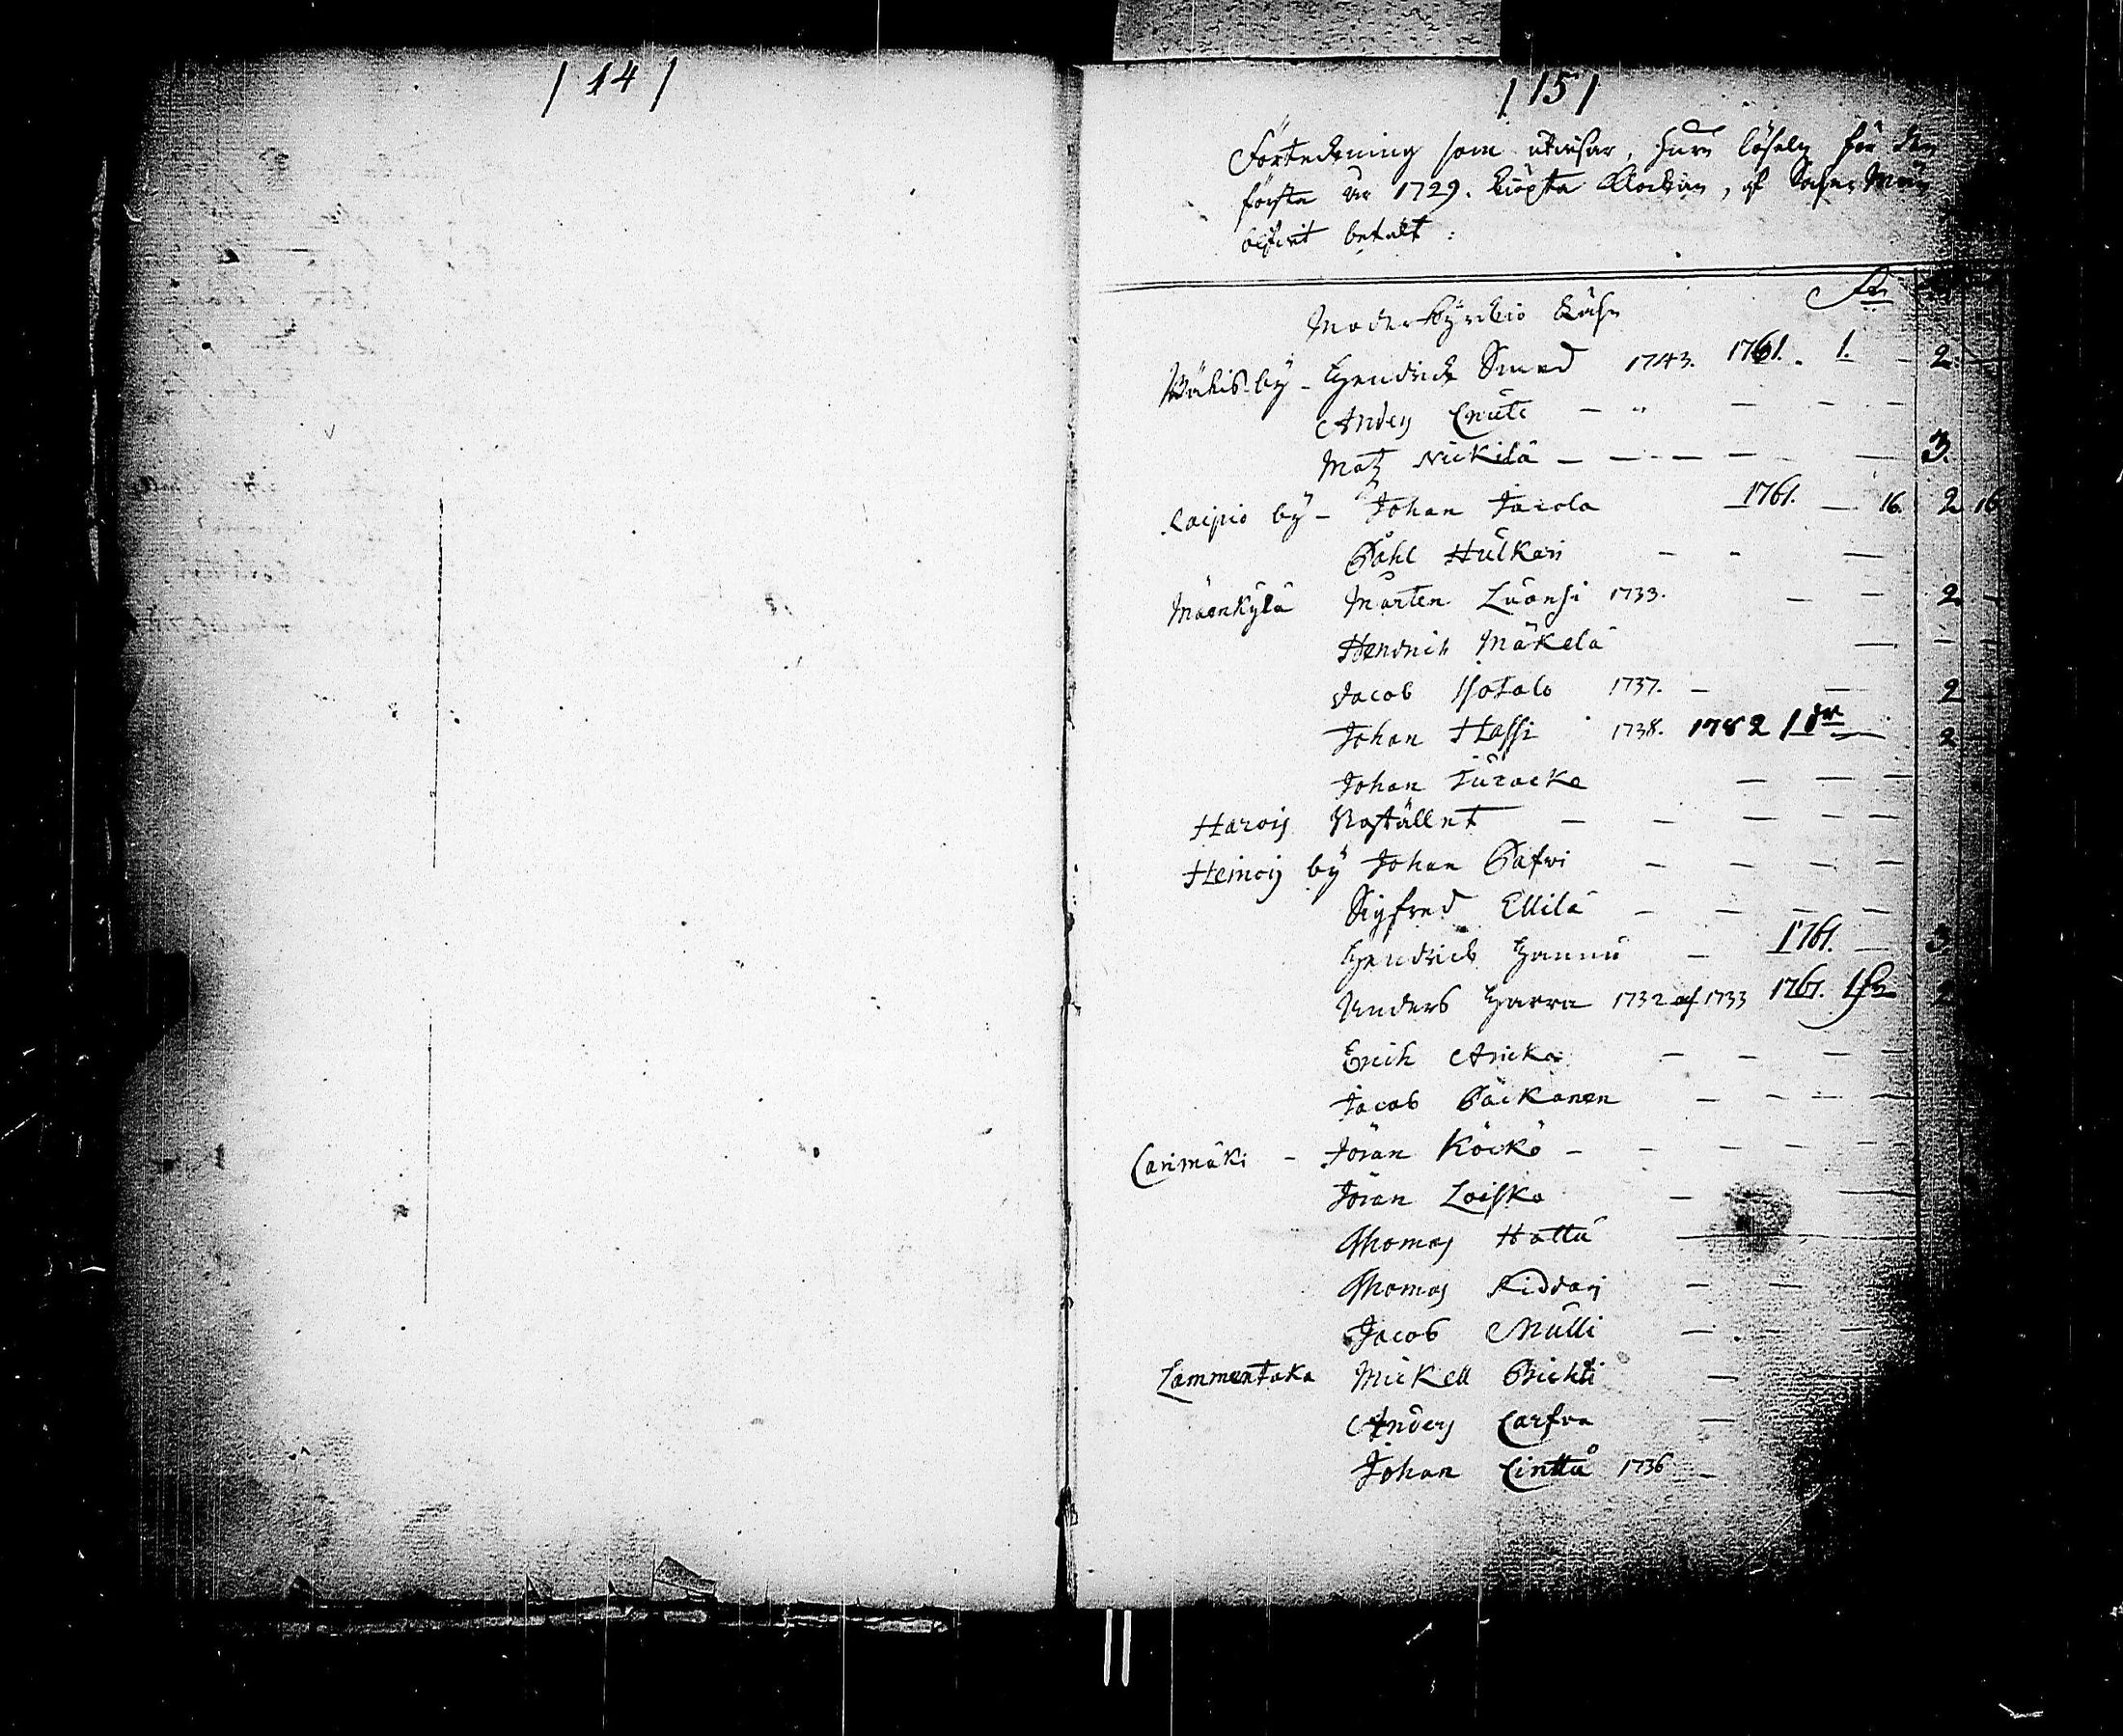 / 14 /
/ 15 /
Förteckning som utvisar, huru för den
första år 1729. kiöpta Klockan, af Sokne Män
blifwit betalt :
Moderkyrkio
by - Hendrich Smed 1743. 1761. 1. - 2. -
Anders Cnuti - - - - -
Matz Nickilä - - - - - 3.
Laipio by - Johan Jacola 1761. - 16. 2 16
Påhl Hulkari - - -
Mäenkylä Mårten Luonsi 1733. - - 2 -
Hendrich Mäkelä - - -
Jacob Isotalo 1737. - - 2 -
Johan Hassi 1738. 1782 1 dr - 2
Johan Turacka - - -
Harois Bostället - - - - -
Heinois by Johan Pafwi - - - -
Sigfred Ellilä - - - -
Hendrich Hannu - 1761. - 3
Anders Harra 1732 af 1733 1761. 2
Erich Aricka - - - -
Jacob Päckanen - - - -
Carimäki - Jöran Köckö - - - - -
Jöran Loiska - -
Thomas Hattu -
Thomas Riddari - -
Jacob Mulli - - -
Lammentaka Mickell Prihti -
Anders Carfva -
Johan Cinttu 1736 -